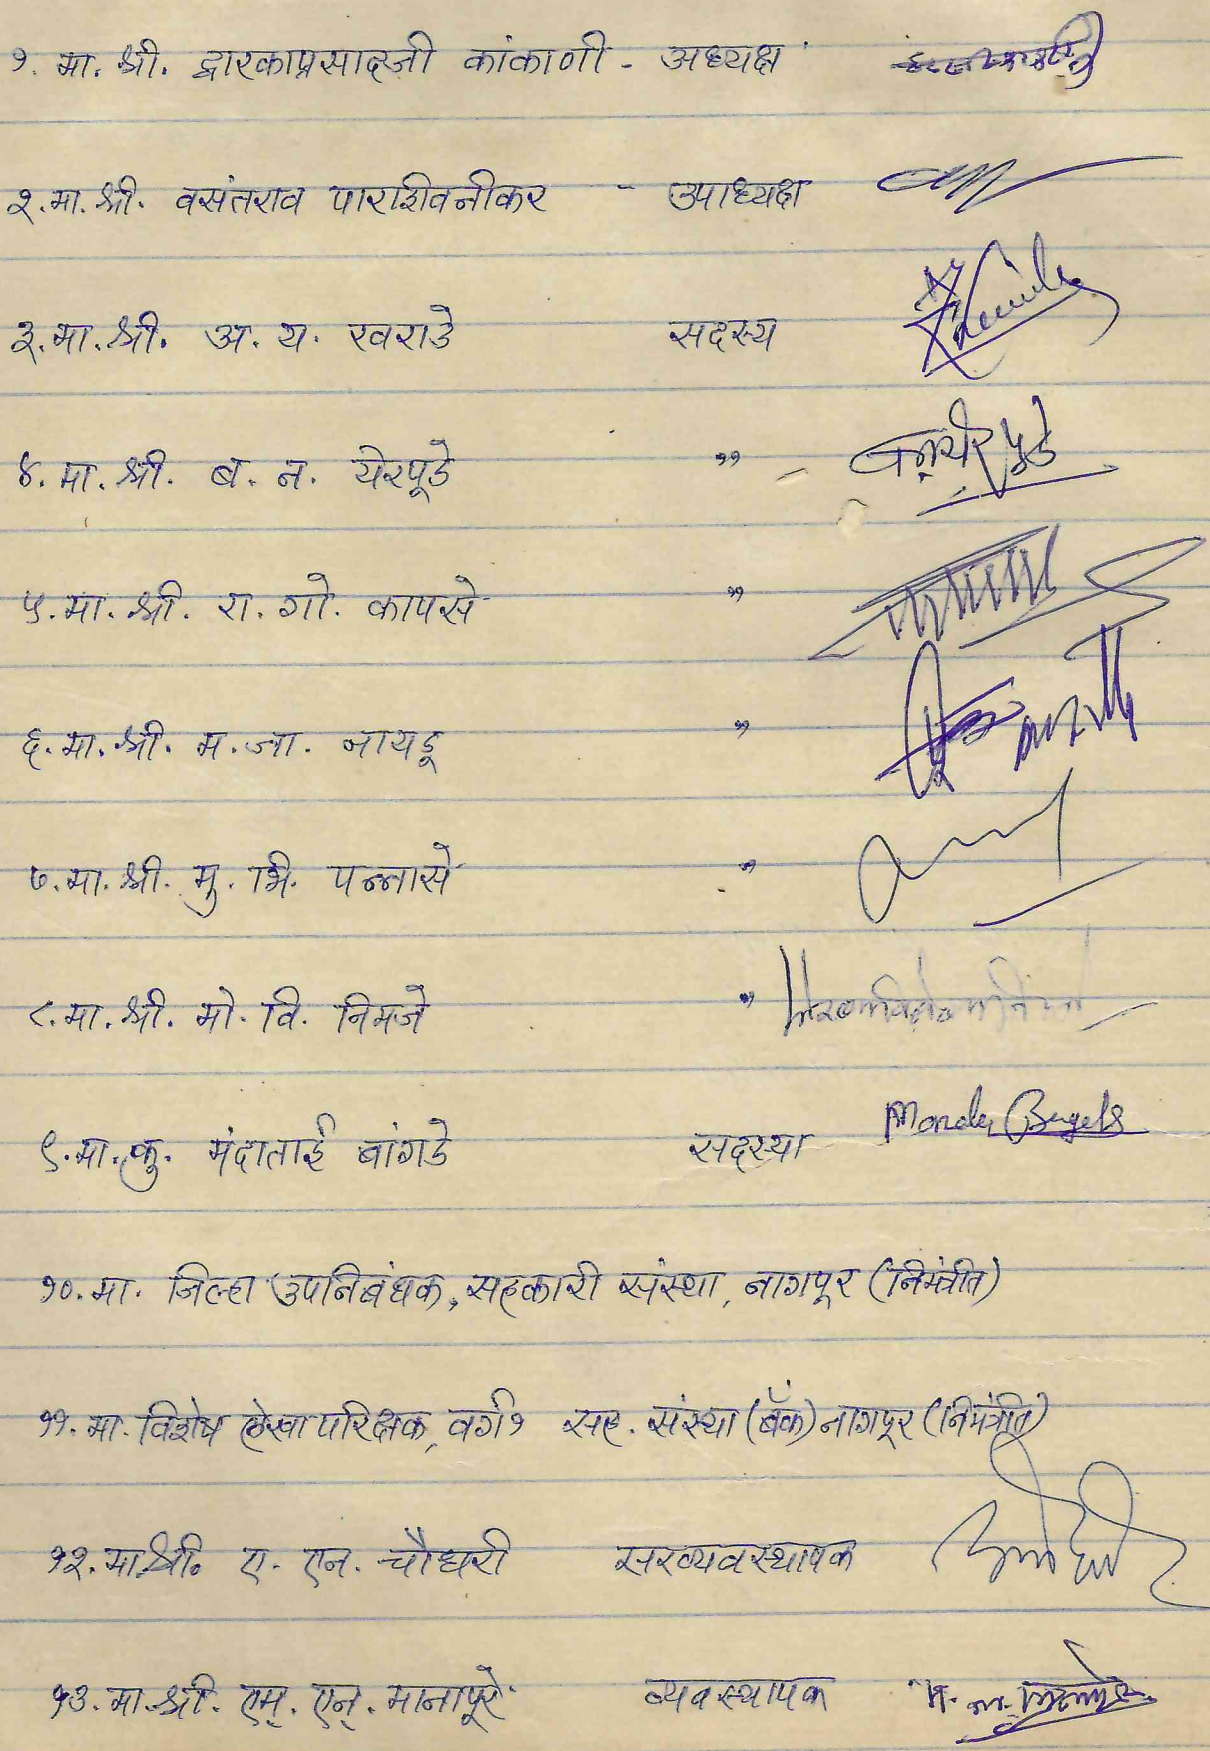 १. मा. श्री. द्वारकाप्रसादजी कांकाणी - अध्यक्ष
२. मा. श्री. वसंतराव पाराशिवनीकर - उपाध्यक्ष
३. मा. श्री. अ. य. खराडे सदस्य
४. मा. श्री. ब. न. येरपूडे " बनयेरपुडे
५. मा. श्री. रा. गो. कापसे "
६. मा. श्री. म. जा. नायडू "
७. मा. श्री. मु. भि. पन्नासे "
८. मा. श्री. मो. वि. निमजे "
९. मा. कु. मंदाताई बांगडे सदस्या Manda
१०. मा. जिल्हा उपनिबंधक, सहकारी संस्था, नागपूर (निमंत्रीत)
११. मा. विशेष लेखा परिक्षक, वर्ग १ सह. संस्था (बँक) नागपूर (निमंत्रीत)
१२. मा. श्री. ए. एन. चौधरी सरव्यवस्थापक
१३. मा. श्री. एम्. एन्. मानापूरे व्यवस्थापक